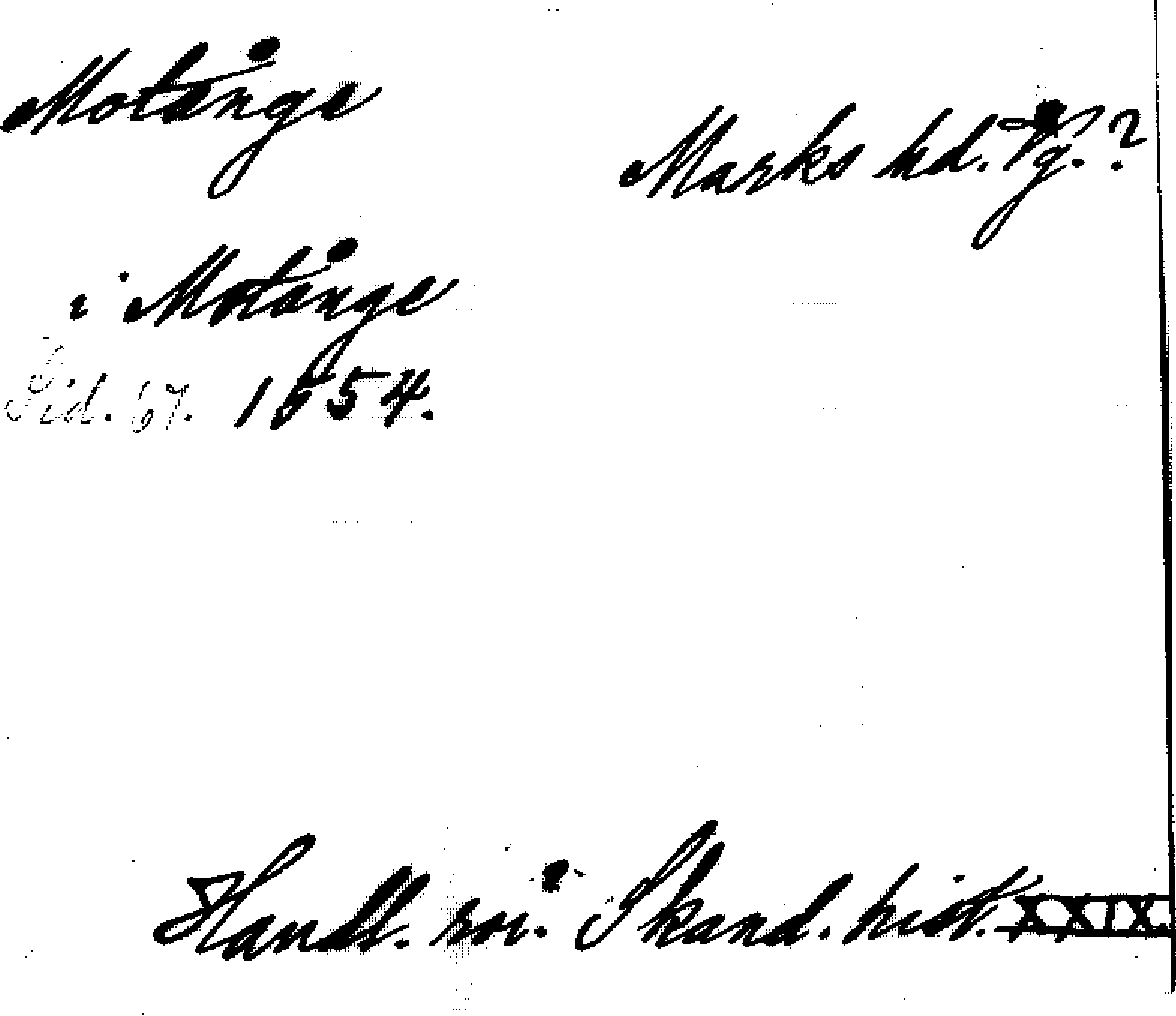 Motånge
Marks hd. Vg.?
i Motånge
Sid. 67. 1554.
Handl. rör. Skand. hist. XXIX.